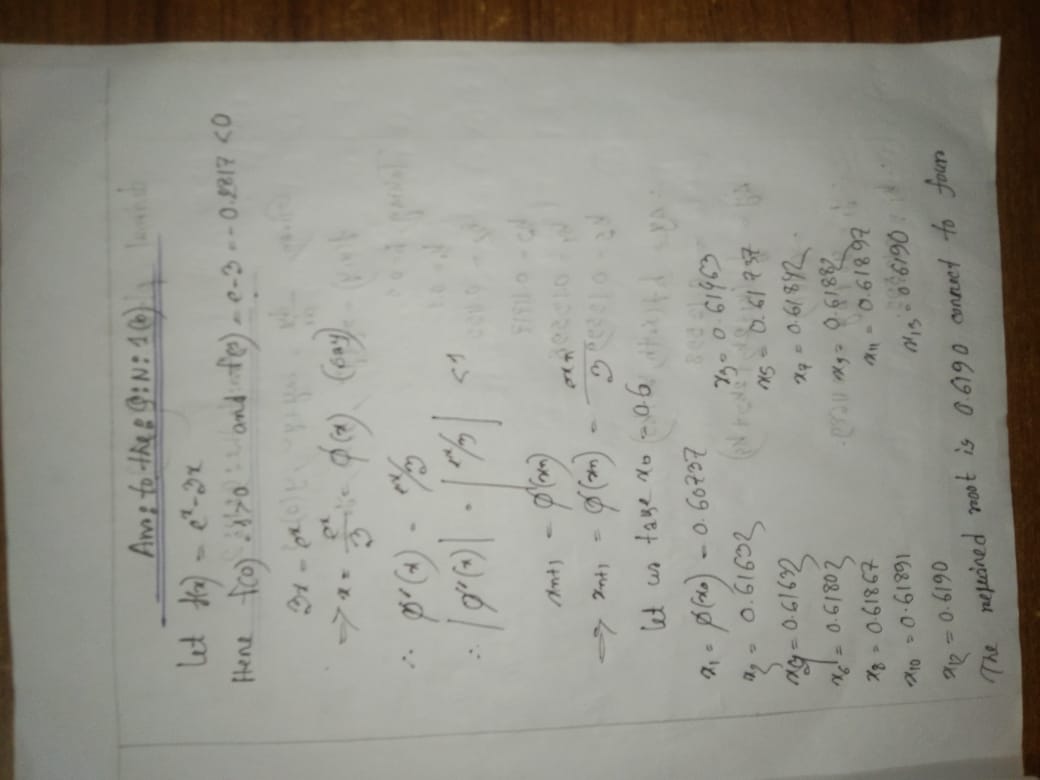 Ans: to the: Q: N: 1(b)
Let f(x) = e^x - 3x
Here f(0) = 1 > 0 and f(1) = e - 3 = - 0.2817 < 0
3x = e^x
⇒ x = e^x/3 = φ(x) (say)
∴ φ'(x) = e^x/3
∴ |φ'(x)| = |e^x/3| < 1
x_{n+1} = φ(x_n)
⇒ x_{n+1} = φ(x_n) = e^{x_n}/3
Let us take x_0 = 0.6
x_1 = φ(x_0) = 0.60737
x_3 = 0.61963
x_5 = 0.61737
x_6 = 0.61803
x_7 = 0.61842
x_8 = 0.61867
x_9 = 0.61882
x_10 = 0.61891
x_11 = 0.61897
x_12 = 0.6190
x_13 = 0.6190
The required root is 0.6190 correct to four